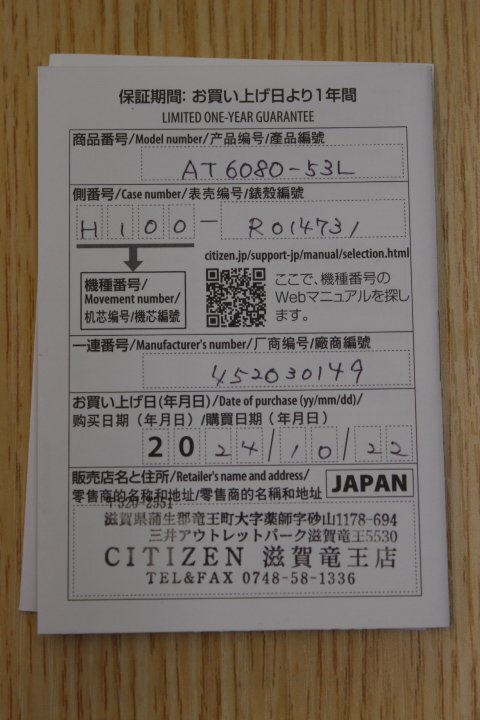 保証期間: お買い上げ日より1年間
LIMITED ONE-YEAR GUARANTEE
商品番号/Model number/产品编号/產品編號
AT6080-53L
側番号/Case number/表壳编号/錶殼編號
H100-R014731
citizen.jp/support-jp/manual/selection.html
機種番号/
Movement number/
机芯编号/機芯編號
ここで、機種番号の
Webマニュアルを探し
ます。
一連番号/Manufacturer's number/厂商编号/廠商編號
452030149
お買い上げ日(年月日)/Date of purchase (yy/mm/dd)/
购买日期（年月日）/購買日期（年月日）
2024/10/22
販売店名と住所/Retailer's name and address/
零售商的名称和地址/零售商的名稱和地址
JAPAN
〒520-2551
滋賀県蒲生郡竜王町大字薬師字砂山1178-694
三井アウトレットパーク滋賀竜王5530
CITIZEN 滋賀竜王店
TEL&FAX 0748-58-1336